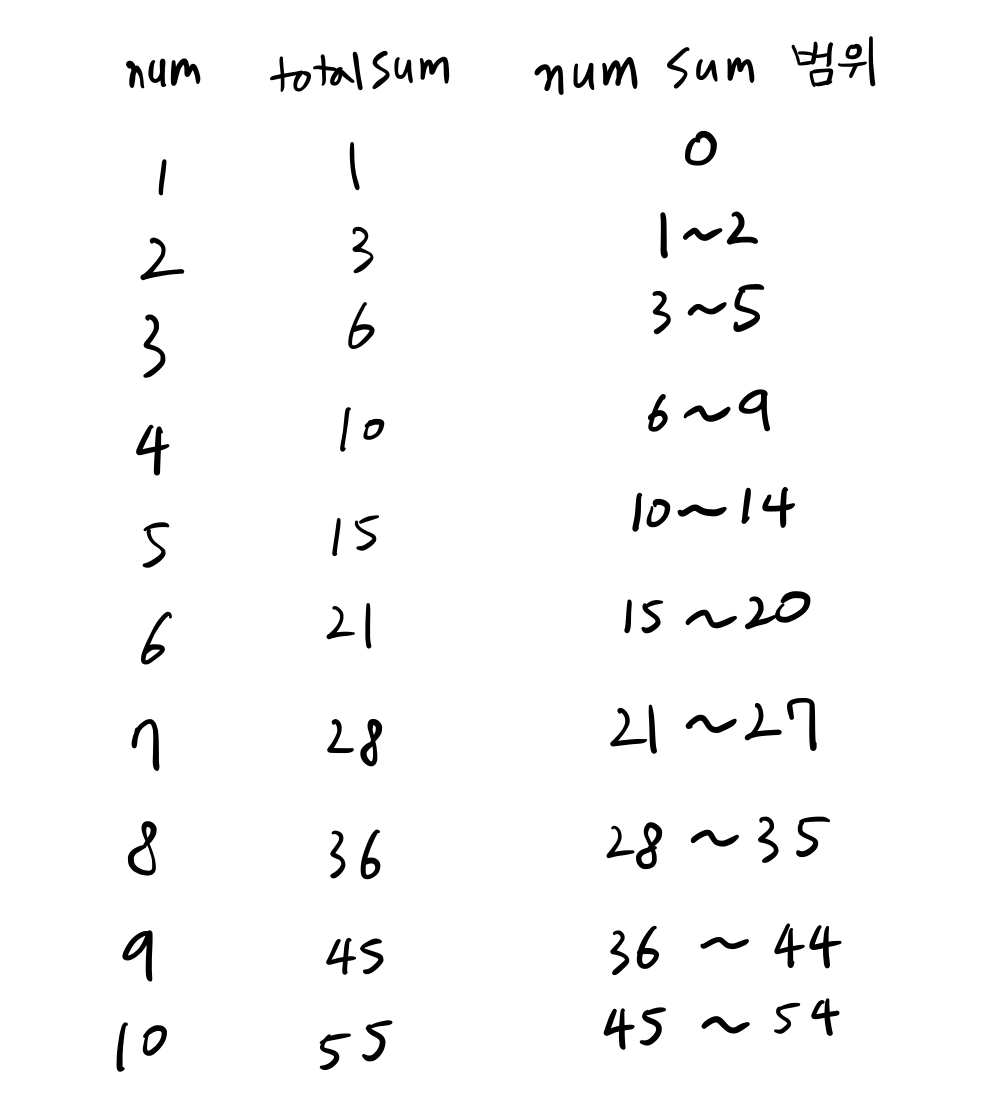 num total sum num sum 범위
1 1 0
2 3 1~2
3 6 3~5
4 10 6~9
5 15 10~14
6 21 15~20
7 28 21~27
8 36 28~35
9 45 36~44
10 55 45~54